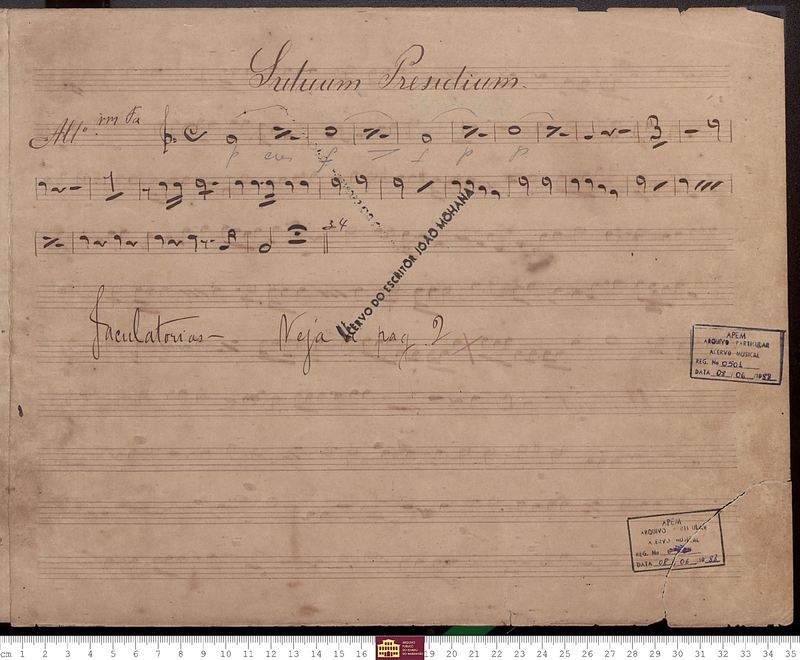 Sutuum Presidium.
All.º im Fa
p cres f f p p
3
34
Jaculatorias — Veja á pag 2
ACERVO DO ESCRITOR JOÃO MOHANA
APEM
ARQUIVO PARTICULAR
ACERVO MUSICAL
REG. No 0501
DATA 08 / 06 / 1988
APEM
ARQUIVO PARTICULAR
ACERVO MUSICAL
REG. No
DATA 08 / 06 / 1988
cm 1 2 3 4 5 6 7 8 9 10 11 12 13 14 15 16 19 20 21 22 23 24 25 26 27 28 29 30 31 32 33 34 35